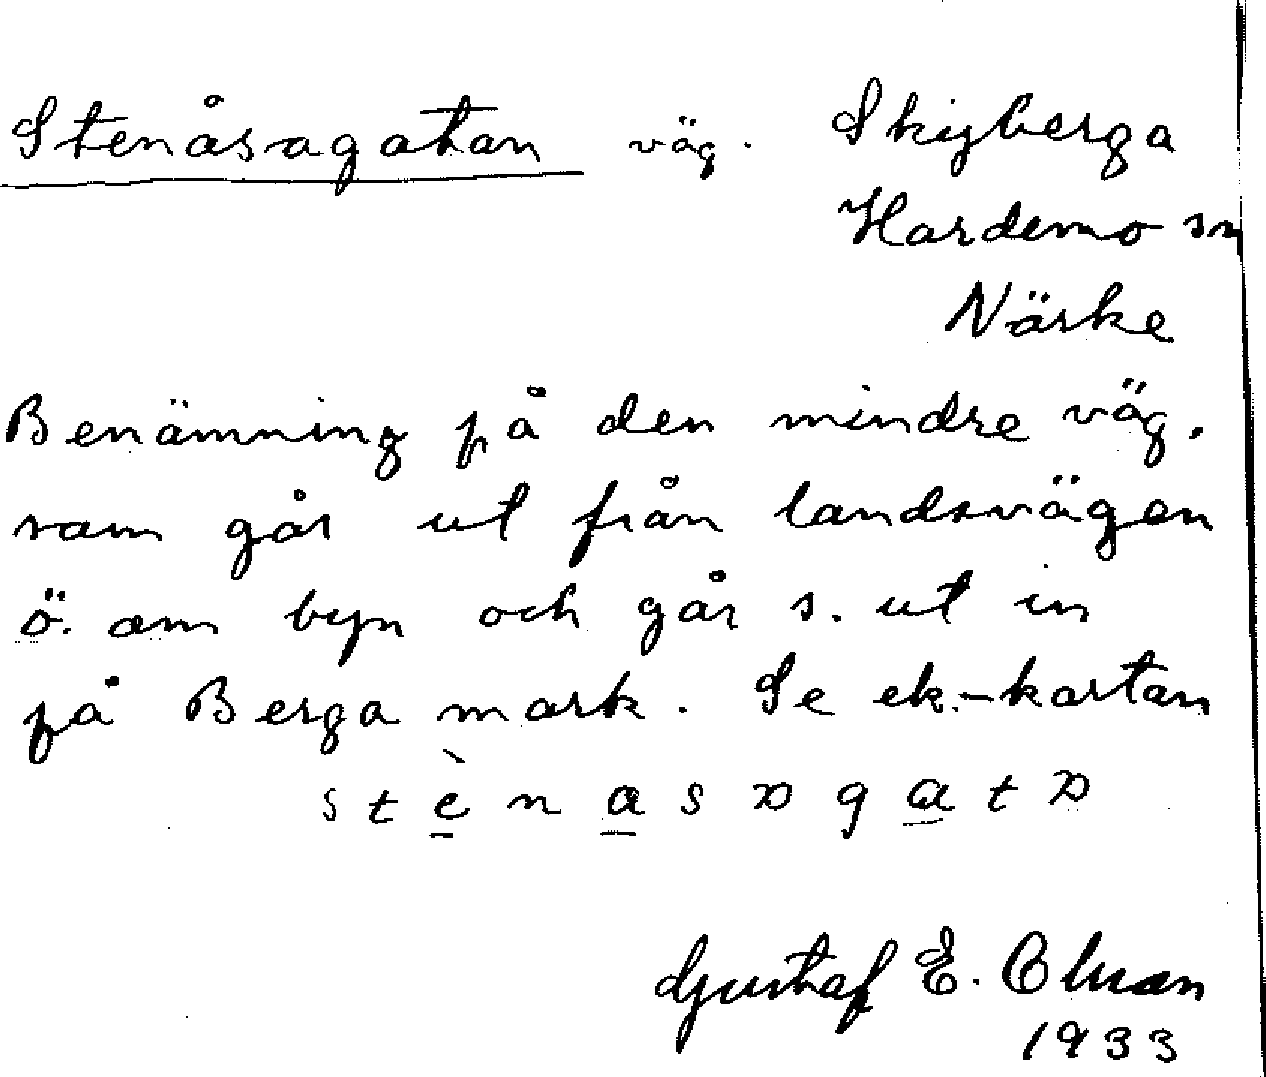 Stenåsagatan väg. Skyberga
Hardemo sn
Närke
Benämning på den mindre väg.
som går ut från landsvägen
ö. om byn och går s. ut in
på Berga mark. Se ek.-kartan
Gustaf E.
1933